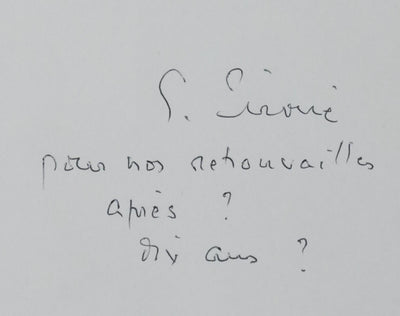 pour nos retrouvailles
après ?
dix ans ?